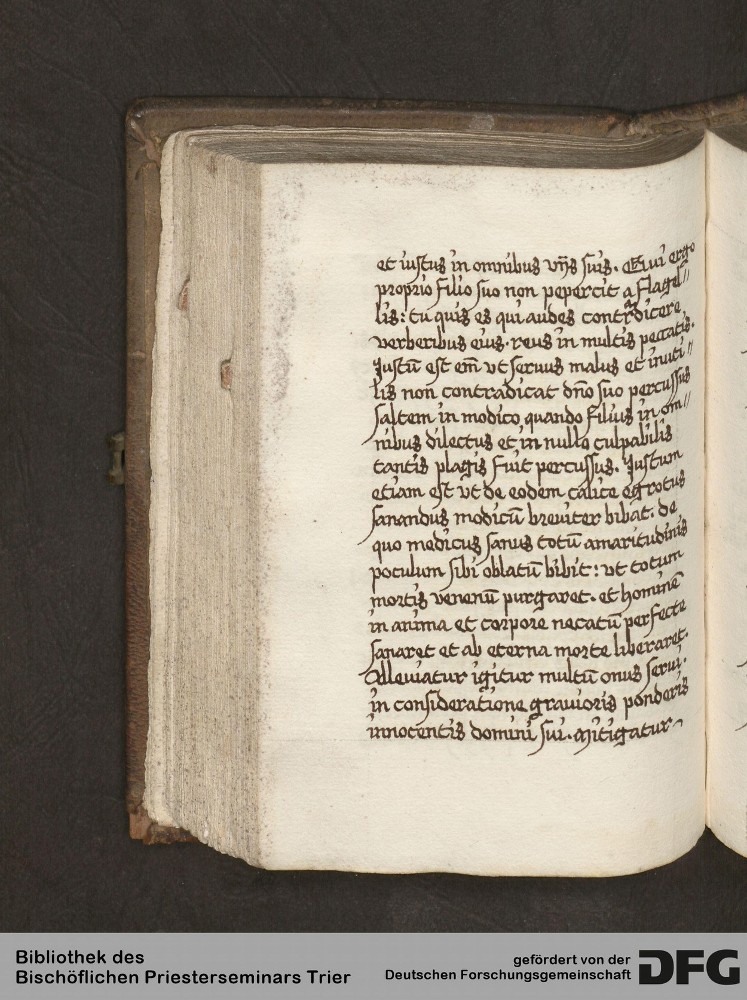 et iustus in omnibus vijs suis. Qui ergo
proprio filio suo non pepercit a flagel//
lis: tu quis es qui audes contradicere
verberibus eius. reus in multis peccatis.
Justū est em̄ vt seruus malus et inuti//
lis non contradicat dn̄o suo percussus
saltem in modico quando filius in om//
nibus dilectus et in nullo culpabilis
tantis plagis fuit percussus. Justum
etiam est vt de eodem calice egrotus
sanandus modicū breuiter bibat. de
quo medicus sanus totū amaritudinis
poculum sibi oblatū bibit: vt totum
mortis venenū purgaret. et hominē
in anima et corpore necatū perfecte
sanaret et ab eterna morte liberaret.
Alleuiatur igitur multū onus serui.
in consideratione grauioris ponderis
innocentis domini sui. Mitigatur
Bibliothek des
Bischöflichen Priesterseminars Trier
gefördert von der
Deutschen Forschungsgemeinschaft DFG